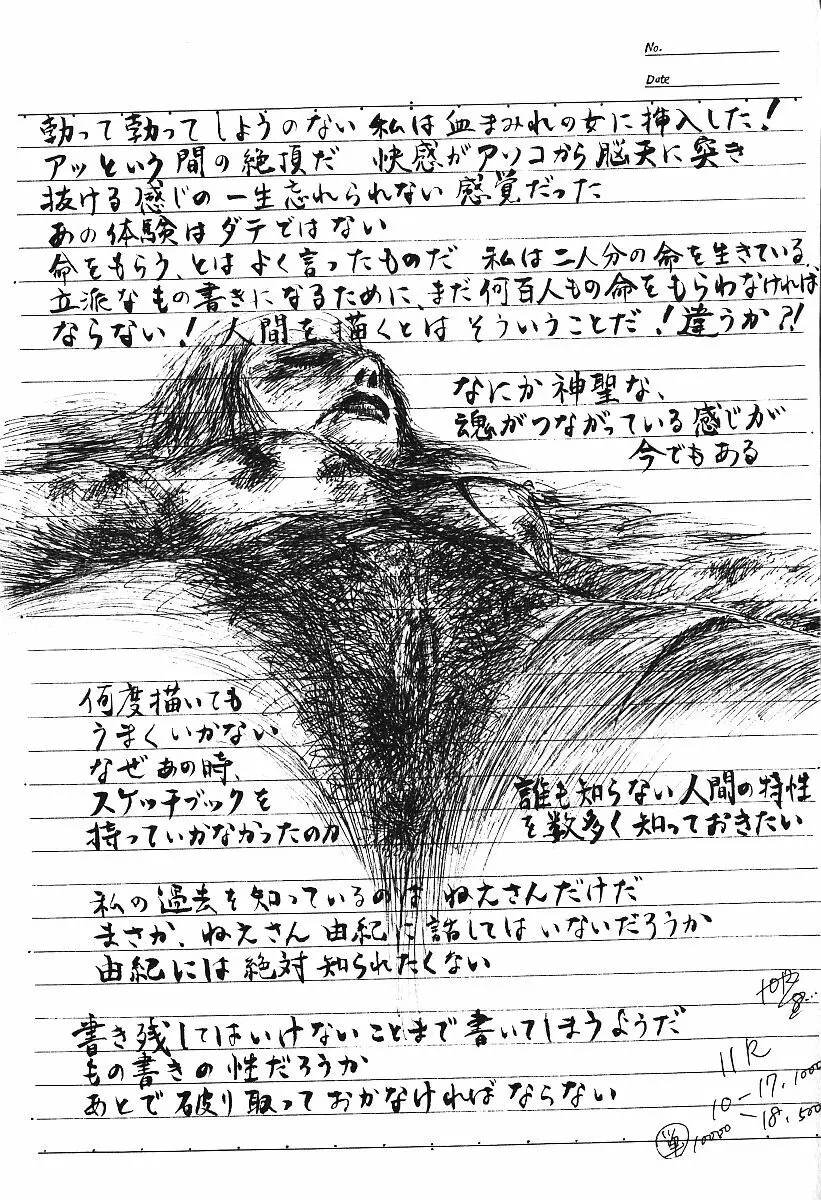 No.
Date
勃って勃ってしようのない 私は血まみれの女に挿入した!
アッという間の絶頂だ 快感がアソコから脳天に突き
抜ける感じの一生忘れられない感覚だった
あの体験はダテではない
命をもらう、とはよく言ったものだ 私は二人分の命を生きている、
立派なもの書きになるために、まだ何百人もの命をもらわなければ
ならない! 人間を描くとはそういうことだ!違うか?!
なにか神聖な、
魂がつながっている感じが
今でもある
何度描いても
うまくいかない
なぜあの時、
スケッチブックを
持っていかなかったのか
誰も知らない人間の特性
を数多く知っておきたい
私の過去を知っているのは ねえさんだけだ
まさか、ねえさん 由紀に話してはいないだろうか
由紀には絶対知られたくない
書き残してはいけないことまで書いてしまうようだ
もの書きの性だろうか
あとで破り取っておかなければならない
11R
10-17.1000
単 10000-18.500